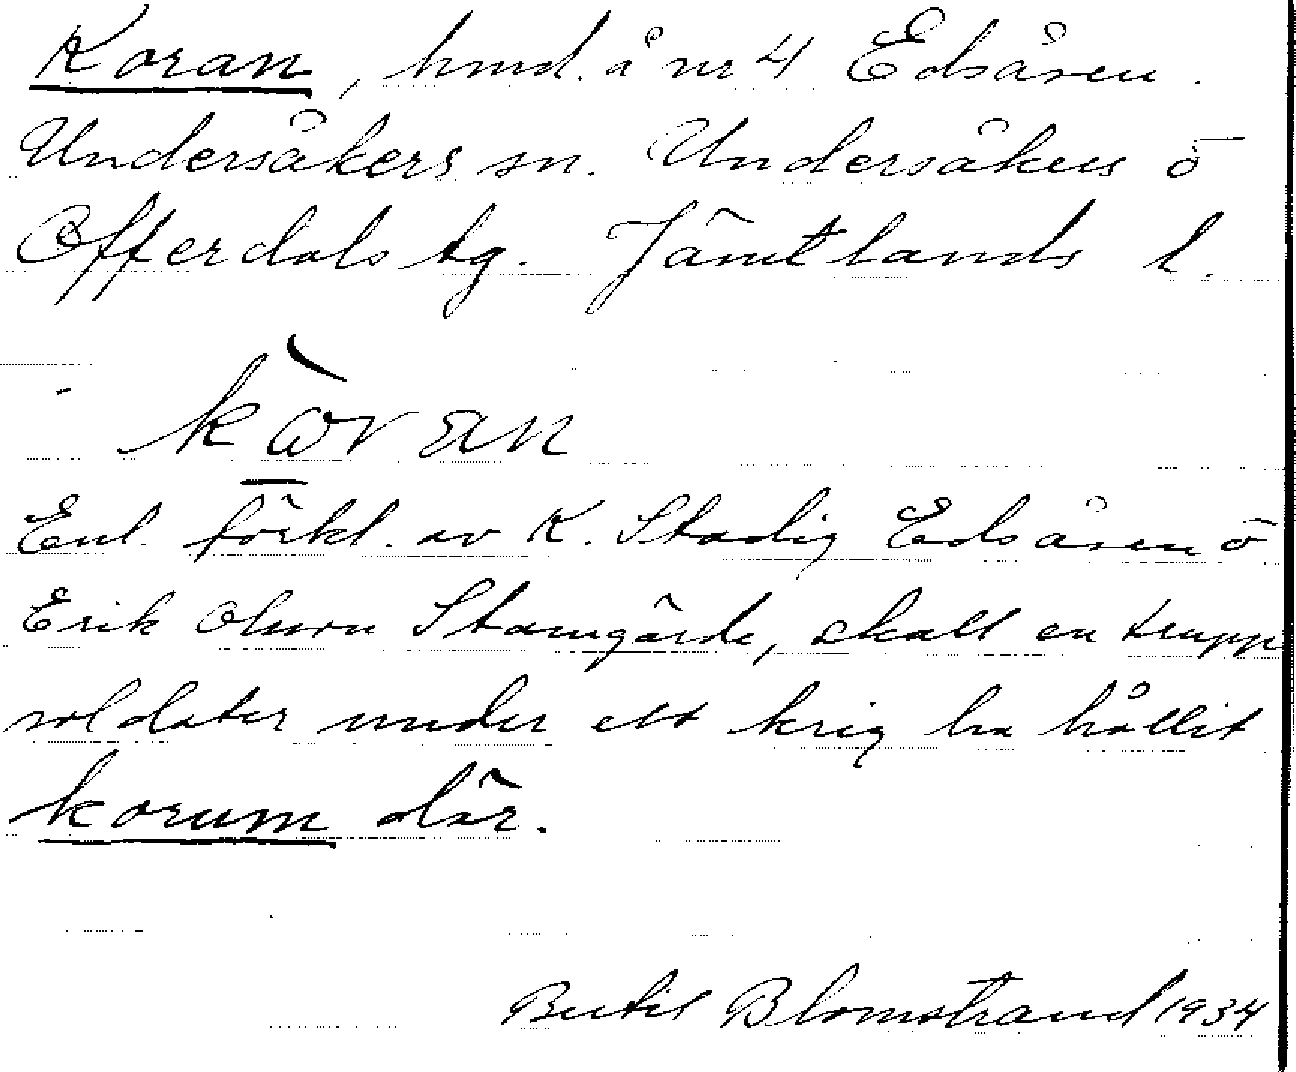 Koran, hmd. å nr 4 Edsåsen.
Undersåkers sn. Undersåkers o
Offerdals tg. Jämtlands l.
kòran
Enl. förkl. av K. Stadig Edsåsen o
Erik Olsson Stamgärde, skall en trupp
soldater under ett krig ha hållit
korum där.
Bertil Blomstrand 1934